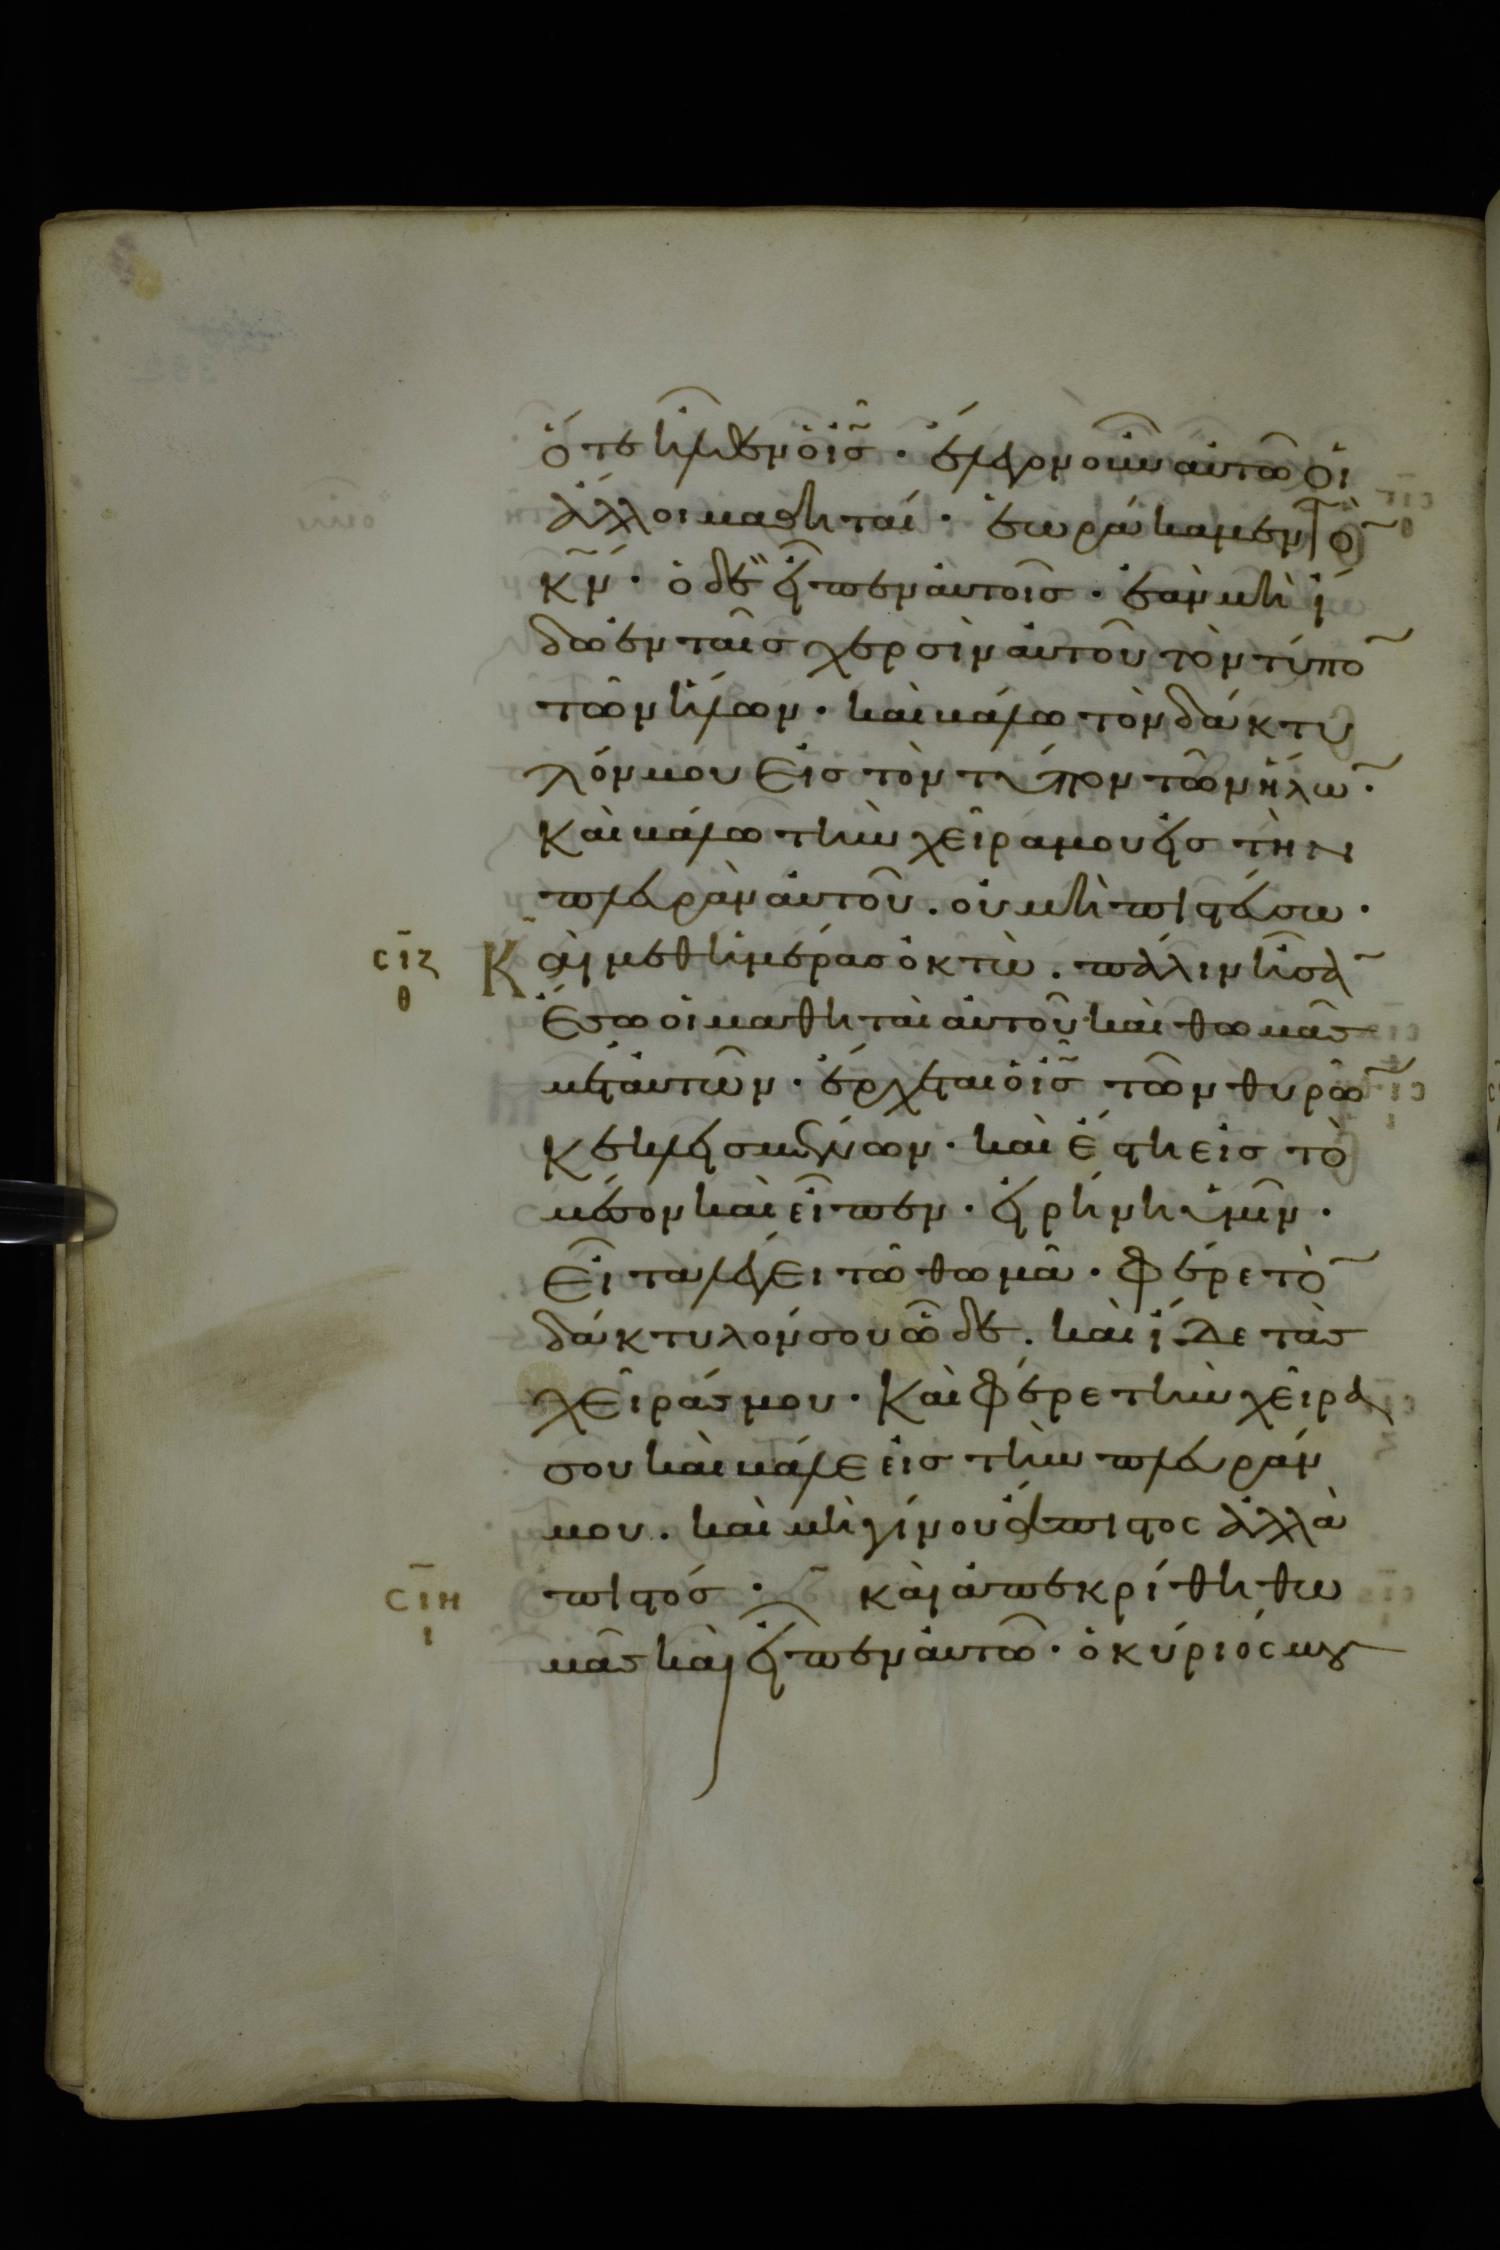 ὅτε ἦλθεν ὁ ις̃· ἔλεγον οὖν αὐτῶ οἱ
ἄλλοι μαθηταί· ἑωράκαμεν τὸ̃
κ̃ν· ὁ δὲ εἶπεν αὐτοῖς· ἐὰν μὴ ἴ
δω ἐν ταῖς χερσὶν αὐτοῦ τὸν τύπο̃
τῶν ἥλων· καὶ βάλω τὸν δάκτυ
λόν μου εἰς τὸν τύπον τῶν ἥλω̃·
καὶ βάλω τὴν χεῖρα μου εἰς τὴν
πλευρὰν αὐτοῦ. οὐ μὴ πιστεύσω·
σ̅ι̅ζ Καὶ μεθ ἡμέρας ὀκτὼ. πάλιν ἦσα̃
θ
ἔσω οἱ μαθηταὶ αὐτοῦ καὶ θωμᾶς
μετ αὐτῶν· ἔρχεται ὁ ις̃ τῶν θυρῶ̃
κεκλεισμένων· καὶ ἔστη εἰς τὸ
μέσον καὶ εἶπεν· εἰρήνη ὑμῖν·
εἶτα λέγει τῶ θωμᾶ· φέρε τὸ̃
δάκτυλόν σου ὧδε. καὶ ἴδε τὰς
χεῖράς μου· καὶ φέρε τὴν χεῖρά
σου καὶ βάλε εἰς τὴν πλευράν
μου. καὶ μὴ γίνου ἄπιστος ἀλλὰ
σ̅ι̅η πιστός· καὶ ἀπεκρίθη θω
ι
μᾶς καὶ εἶπεν αὐτῶ· ὁ κύριός μου